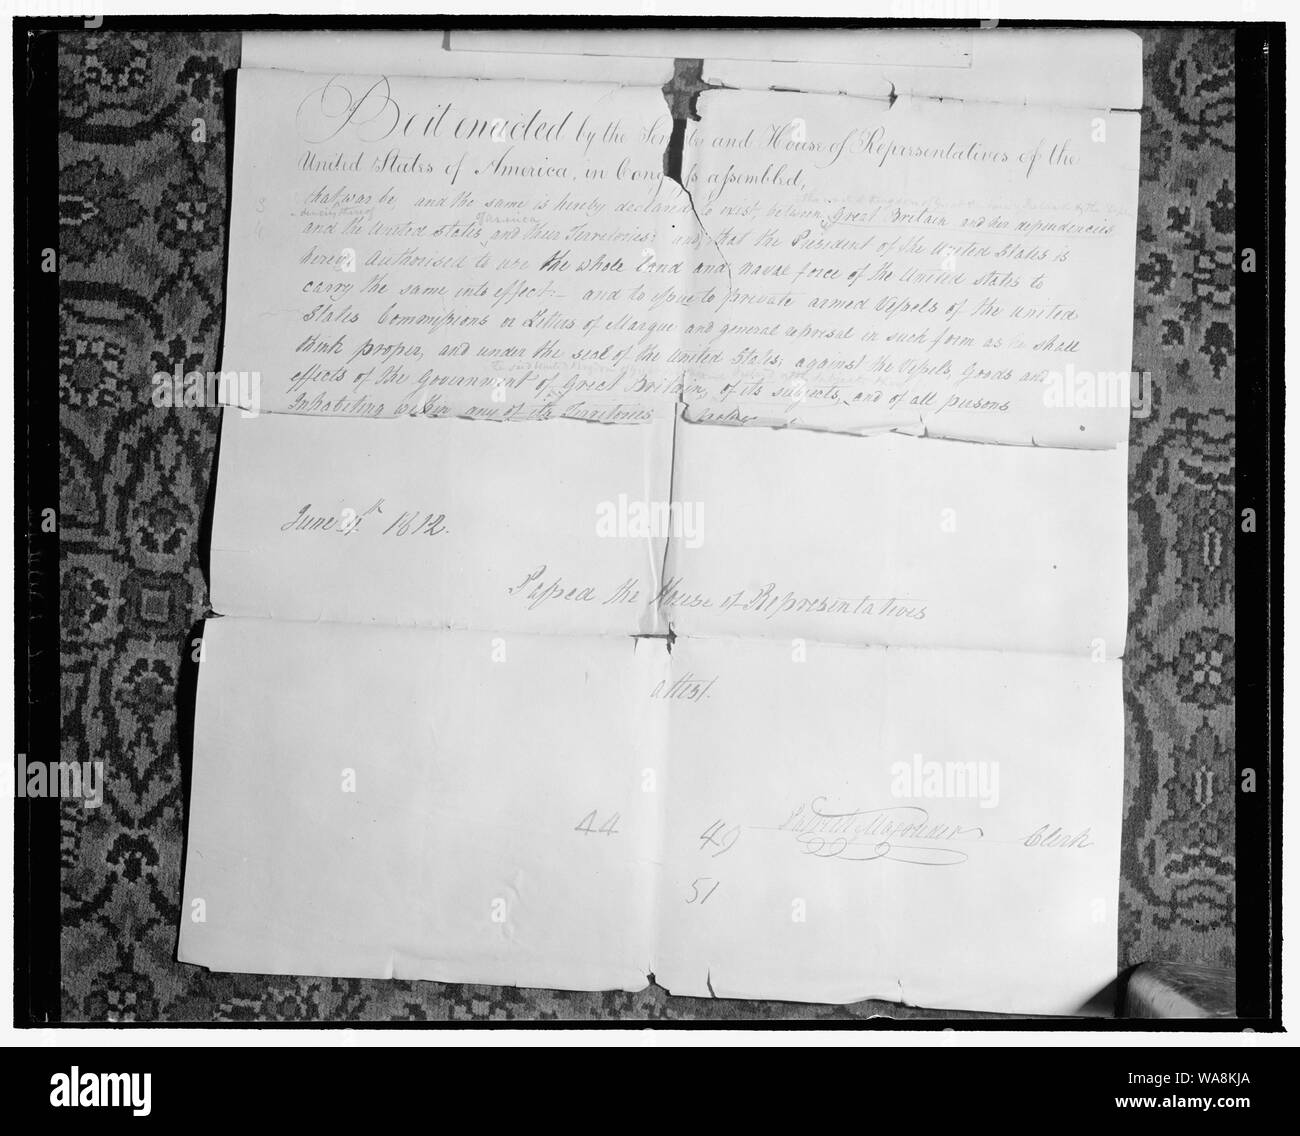 Be it enacted by the Senate and House of Representatives of the
United States of America, in Congress assembled,
that war be and the same is hereby declared to exist, between Great Britain and her dependencies
of America
and the United States, and their Territories; and, that the President of the United States is
hereby Authorised to use the whole land and naval force of the United States to
carry the same into effect:- and to issue to private armed Vessels of the United
States Commissions or Letters of Marque and general reprisal in such form as he shall
think proper, and under the seal of the United States; against the Vessels, Goods and
effects of the Government of Great Britain, of its subjects, and of all persons
Inhabiting within any of its Territories
June 4th 1812.
Passed the House of Representatives
attest.
44
49
Patrick Magruder Clerk
51
alamy
Image ID: WA8KJA
www.alamy.com